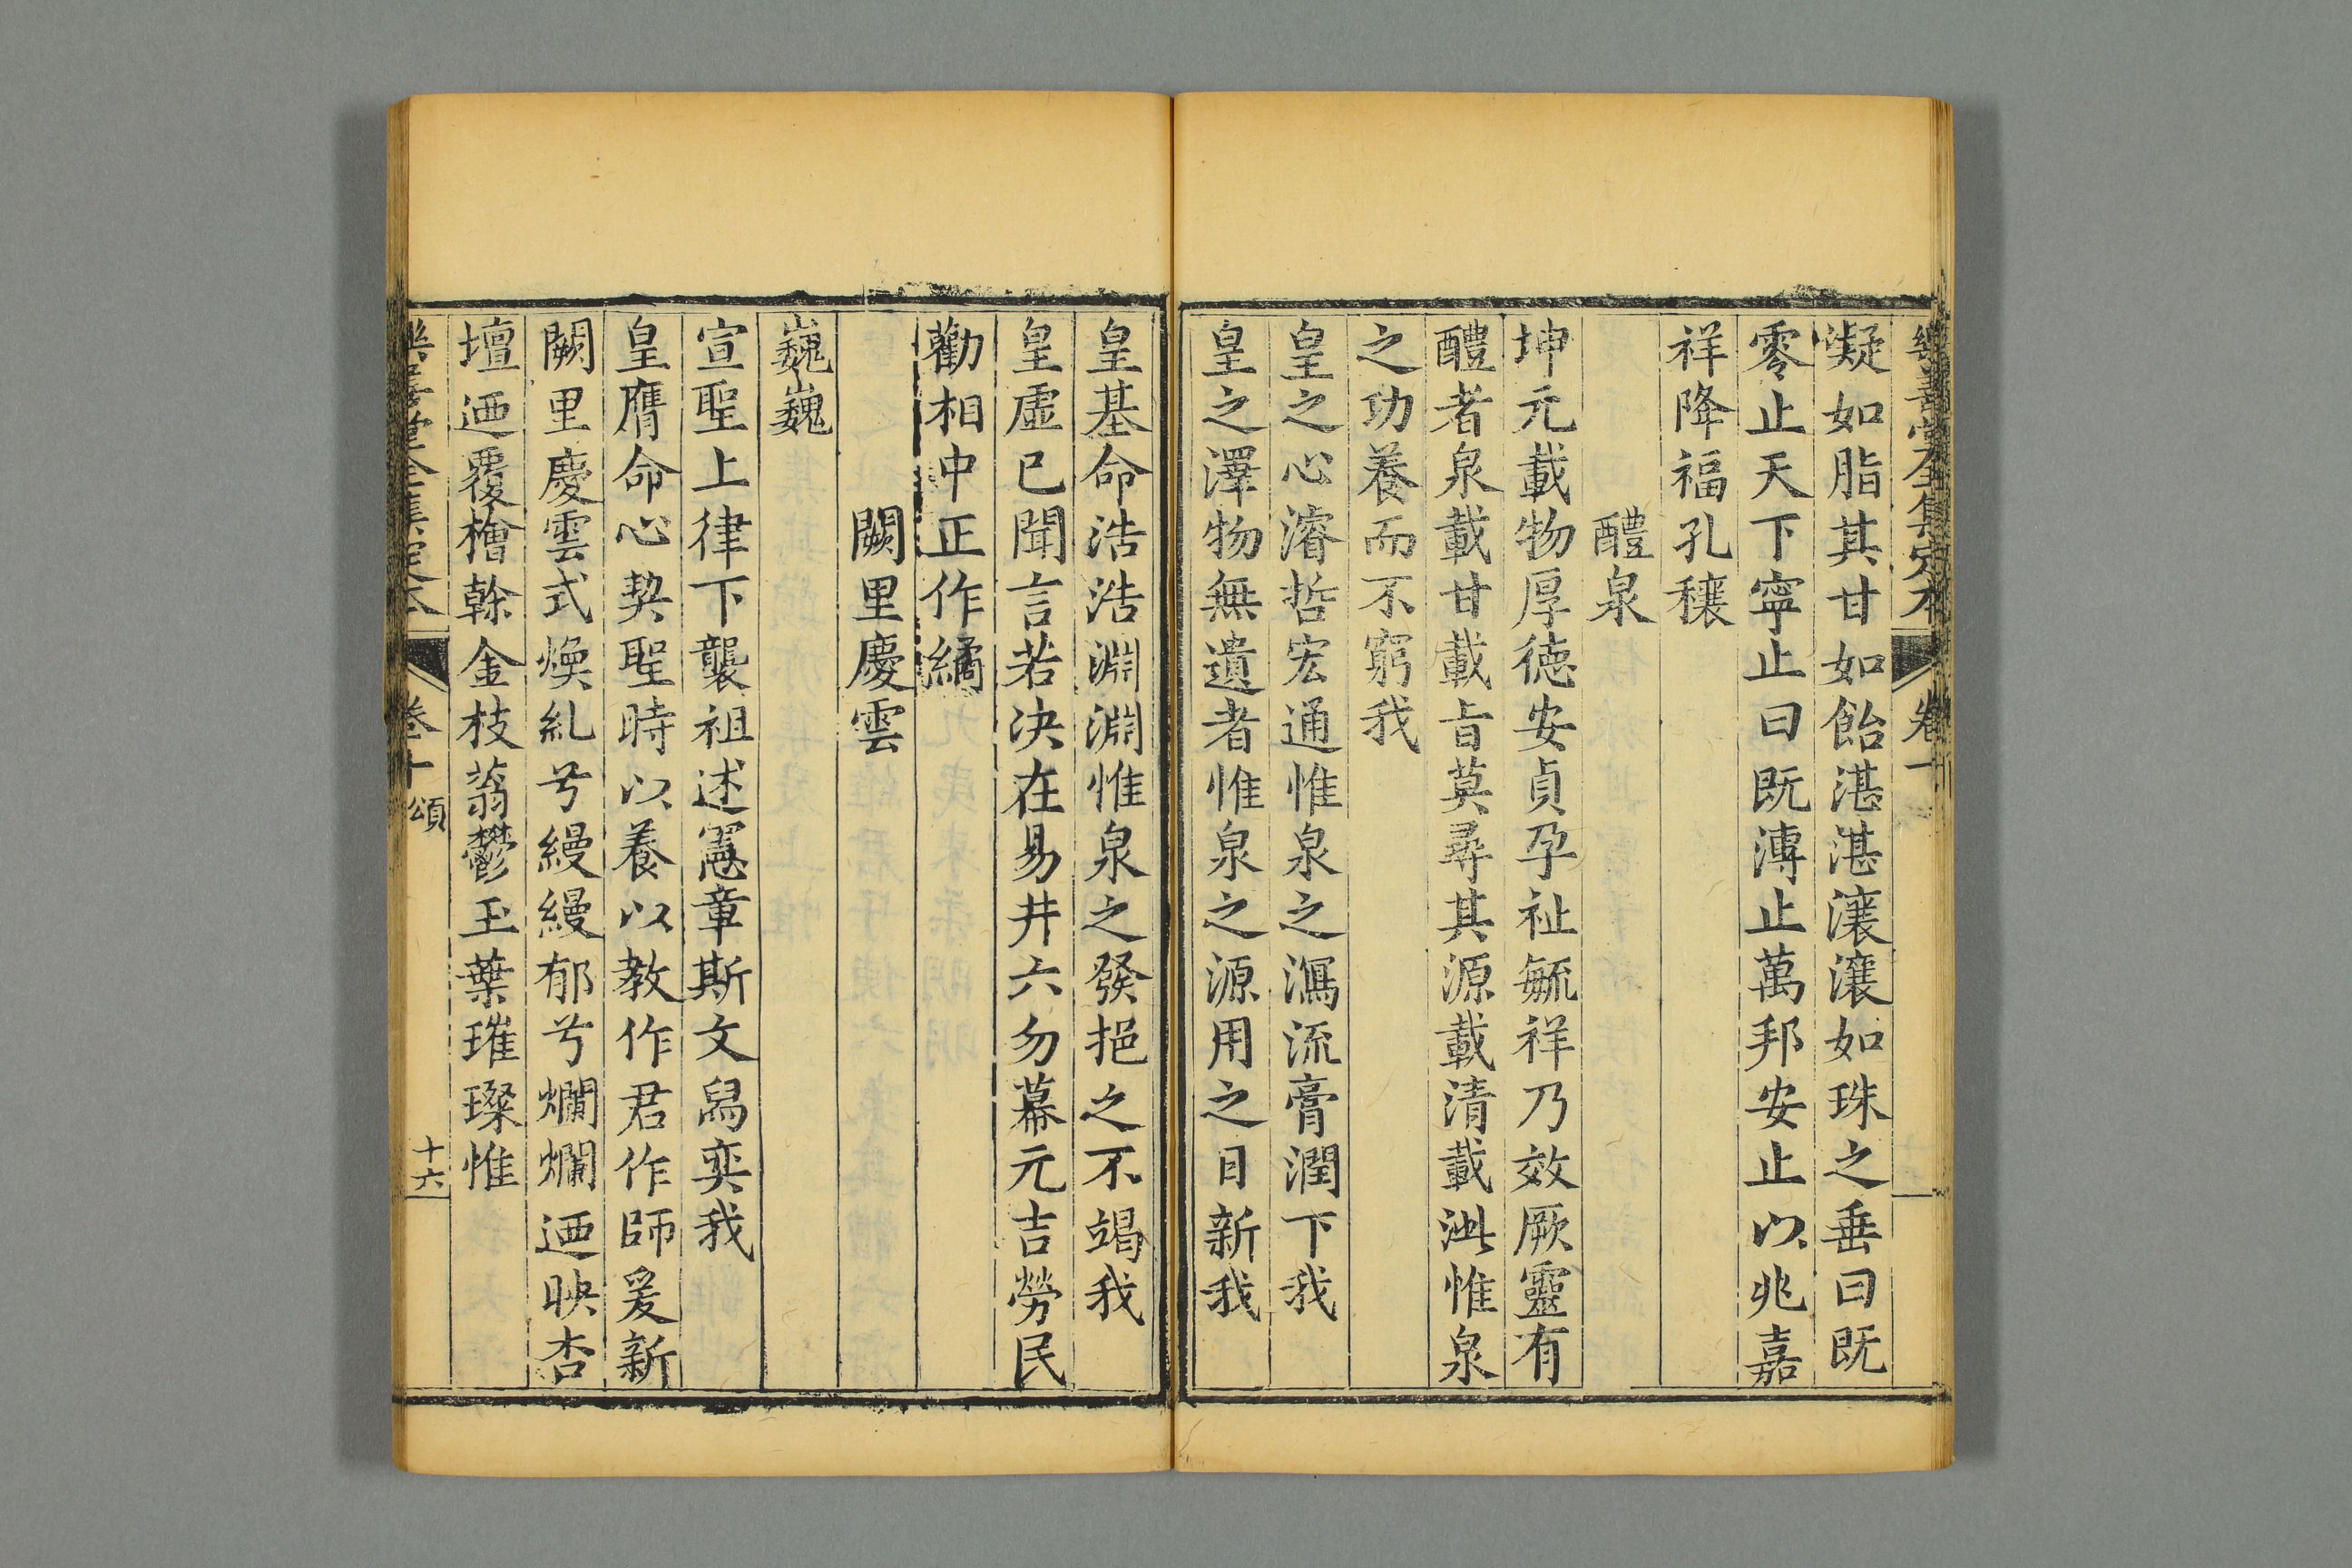 樂善堂全集定本 卷十
凝如脂其甘如飴湛湛瀼瀼如珠之垂曰既
零止天下寧止曰既漙止萬邦安止以兆嘉
祥降福孔穰
醴泉
坤元載物厚德安貞孕祉毓祥乃效厥靈有
醴者泉載甘載旨莫尋其源載清載泚惟泉
之功養而不窮我
皇之心濬哲宏通惟泉之瀉流膏潤下我
皇之澤物無遺者惟泉之源用之日新我
皇基命浩浩淵淵惟泉之發挹之不竭我
皇虛已聞言若决在易井六勿幕元吉勞民
勸相中正作繘
闕里慶雲
巍巍
宣聖上律下襲祖述憲章斯文舄奕我
皇膺命心契聖時以養以教作君作師爰新
闕里慶雲式煥糺兮縵縵郁兮爛爛迺映杏
壇迺覆檜榦金枝蓊鬱玉葉璀璨惟
樂善堂全集定本 卷十 頌 十六